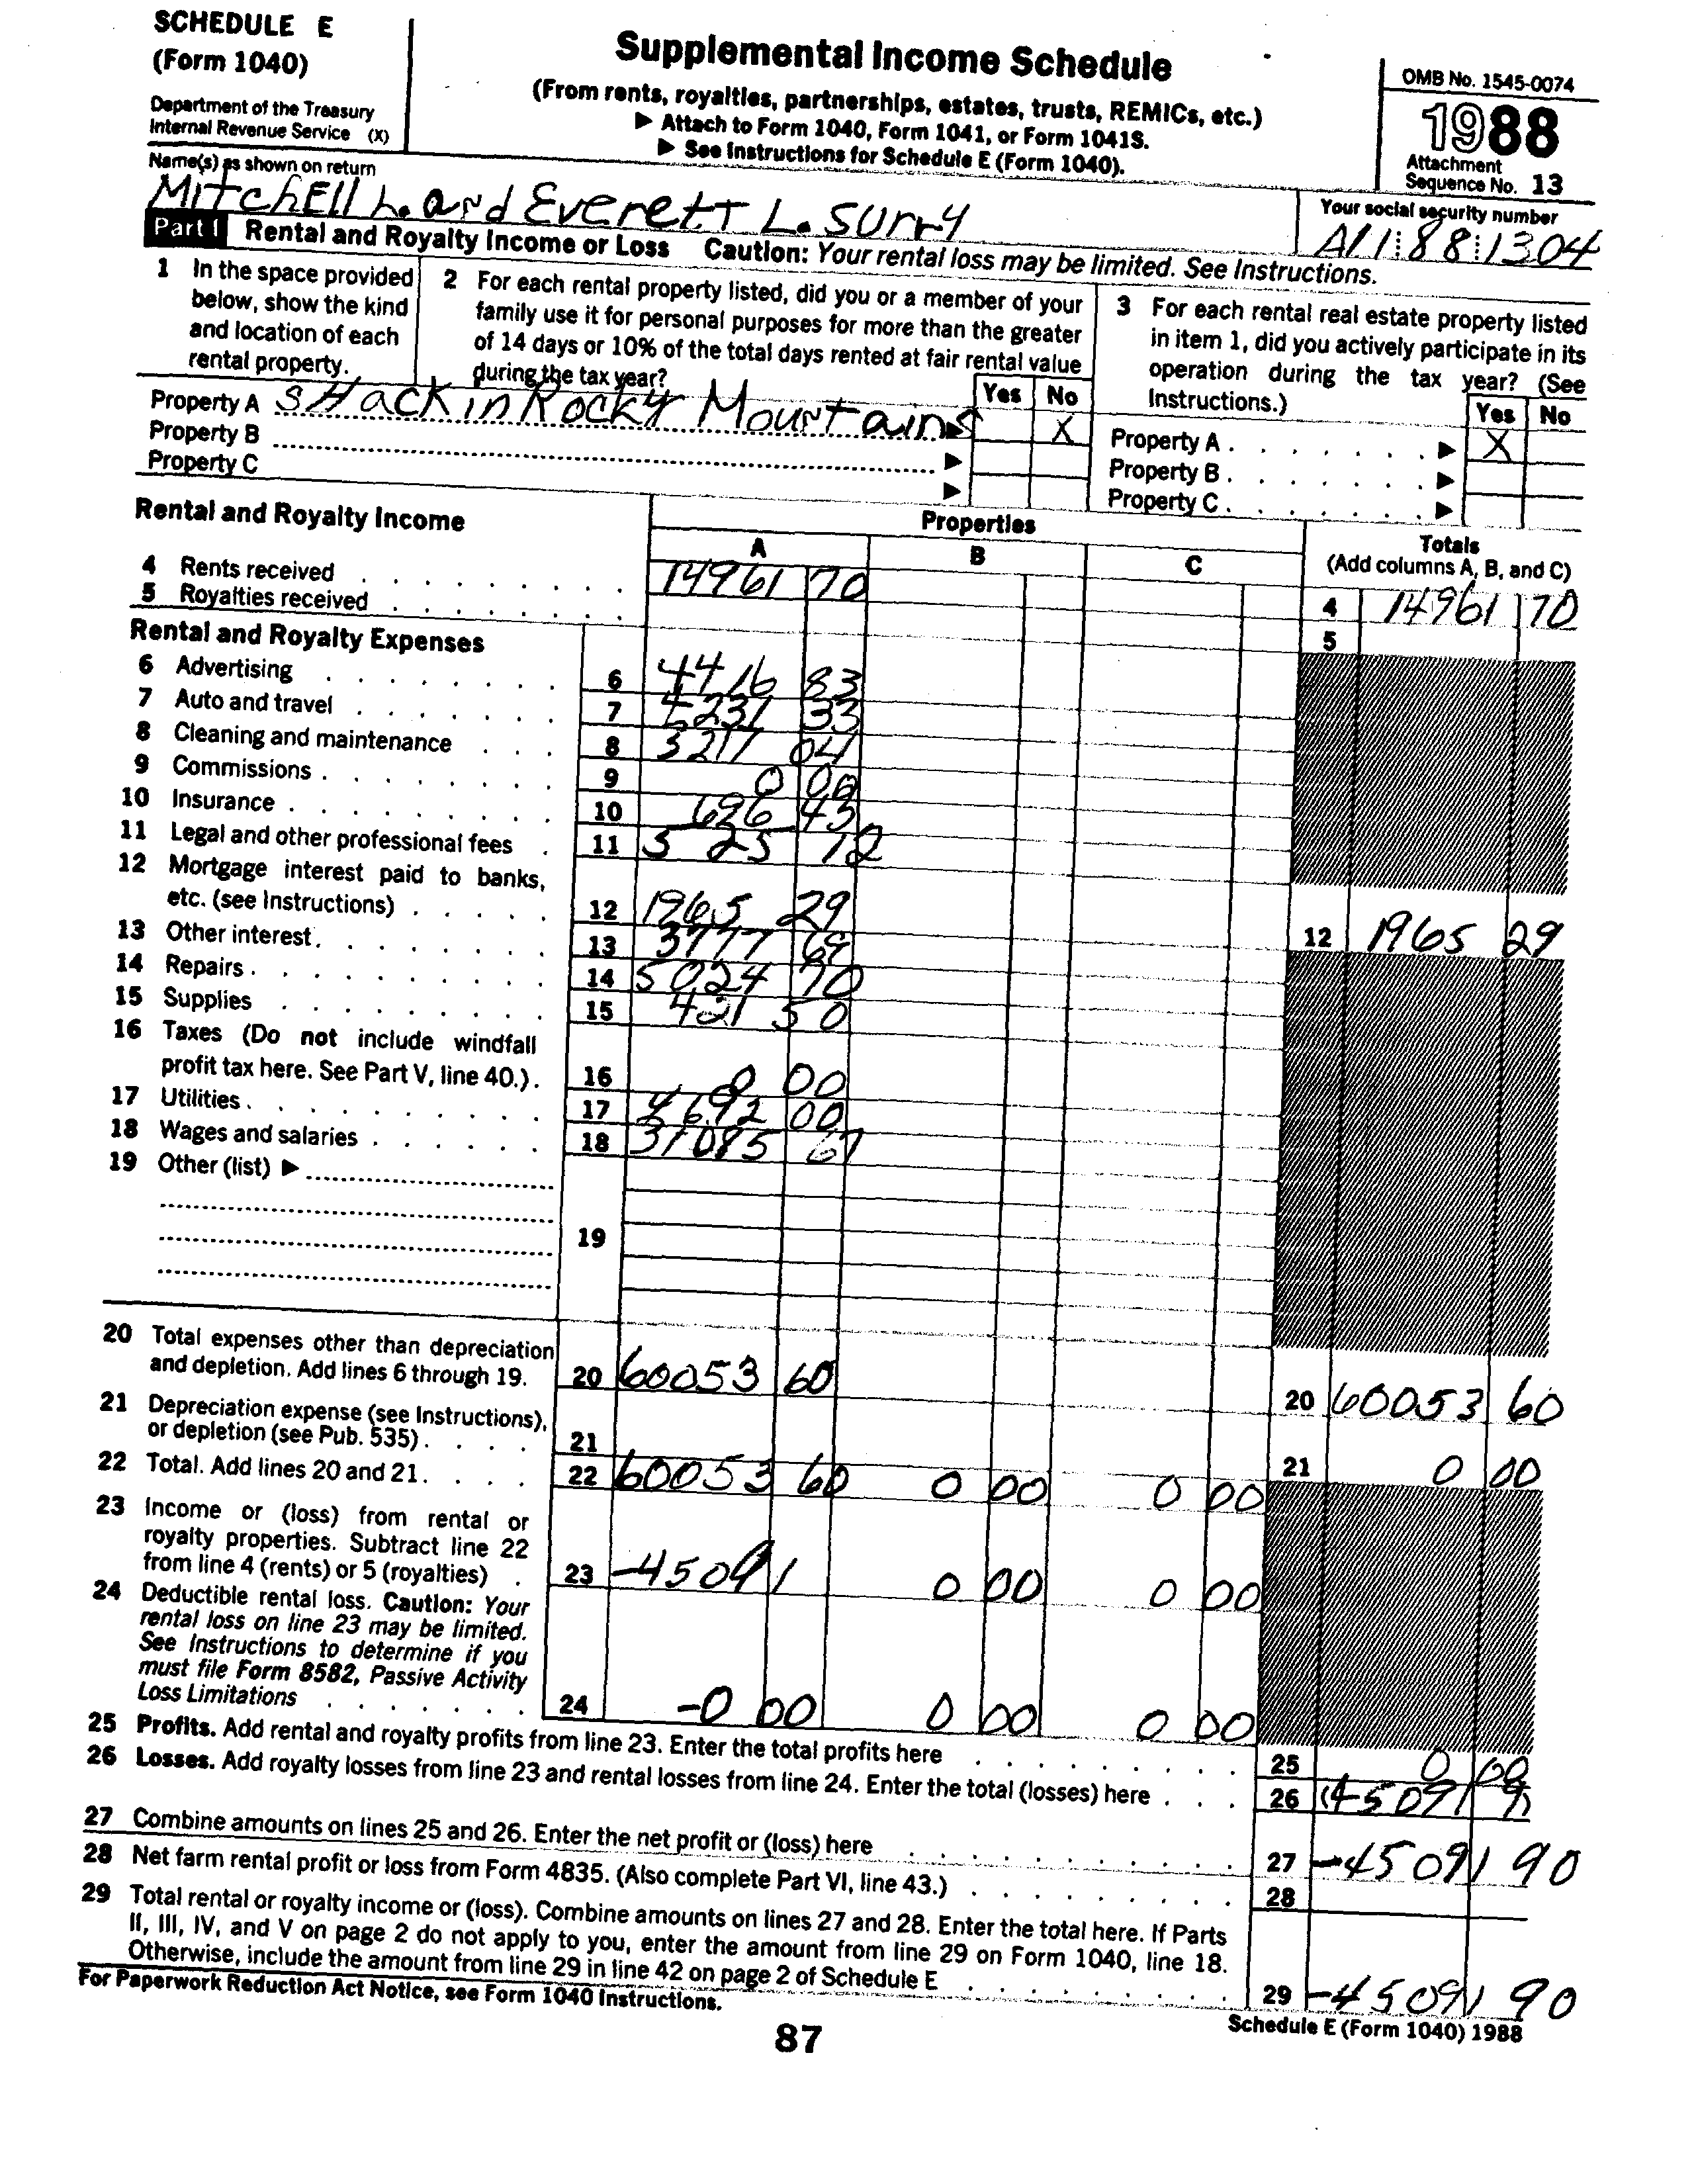 SCHEDULE E
(Form 1040)
Department of the Treasury
Internal Revenue Service (X)
Supplemental Income Schedule
(From rents, royalties, partnerships, estates, trusts, REMICs, etc.)
▶ Attach to Form 1040, Form 1041, or Form 1041S.
▶ See Instructions for Schedule E (Form 1040).
OMB No. 1545-0074
1988
Attachment
Sequence No. 13
Name(s) as shown on return
MitchEll L. and Everett L. Surry
Your social security number
A11 88 1304
Part I Rental and Royalty Income or Loss Caution: Your rental loss may be limited. See Instructions.
1 In the space provided
below, show the kind
and location of each
rental property.
2 For each rental property listed, did you or a member of your
family use it for personal purposes for more than the greater
of 14 days or 10% of the total days rented at fair rental value
during the tax year?
Yes No
3 For each rental real estate property listed
in item 1, did you actively participate in its
operation during the tax year? (See
Instructions.)
Yes No
Property A SHack in Rocky Mountains ▶ X
Property B ▶
Property C ▶
Property A . . . . . . . ▶ X
Property B . . . . . . . ▶
Property C . . . . . . . ▶
Rental and Royalty Income
Properties
A B C
Totals
(Add columns A, B, and C)
4 Rents received 14961 70 4 14961 70
5 Royalties received 5
Rental and Royalty Expenses
6 Advertising 6 4416 83
7 Auto and travel 7 4231 33
8 Cleaning and maintenance 8 3217 04
9 Commissions 9 0 00
10 Insurance 10 696 43
11 Legal and other professional fees 11 5 25 12
12 Mortgage interest paid to banks,
etc. (see Instructions) 12 1965 29 12 1965 29
13 Other interest 13 3777 69
14 Repairs 14 5024 70
15 Supplies 15 421 50
16 Taxes (Do not include windfall
profit tax here. See Part V, line 40.) 16 0 00
17 Utilities 17 4692 00
18 Wages and salaries 18 31085 67
19 Other (list) ▶
19
20 Total expenses other than depreciation
and depletion. Add lines 6 through 19. 20 60053 60 20 60053 60
21 Depreciation expense (see Instructions),
or depletion (see Pub. 535) 21 21 0 00
22 Total. Add lines 20 and 21. 22 60053 60 0 00 0 00
23 Income or (loss) from rental or
royalty properties. Subtract line 22
from line 4 (rents) or 5 (royalties) 23 -45091 0 00 0 00
24 Deductible rental loss. Caution: Your
rental loss on line 23 may be limited.
See Instructions to determine if you
must file Form 8582, Passive Activity
Loss Limitations 24 -0 00 0 00 0 00
25 Profits. Add rental and royalty profits from line 23. Enter the total profits here 25 0 00
26 Losses. Add royalty losses from line 23 and rental losses from line 24. Enter the total (losses) here 26 (45091 9)
27 Combine amounts on lines 25 and 26. Enter the net profit or (loss) here 27 -45091 90
28 Net farm rental profit or loss from Form 4835. (Also complete Part VI, line 43.) 28
29 Total rental or royalty income or (loss). Combine amounts on lines 27 and 28. Enter the total here. If Parts
II, III, IV, and V on page 2 do not apply to you, enter the amount from line 29 on Form 1040, line 18.
Otherwise, include the amount from line 29 in line 42 on page 2 of Schedule E 29 -45091 90
For Paperwork Reduction Act Notice, see Form 1040 Instructions.
Schedule E (Form 1040) 1988
87